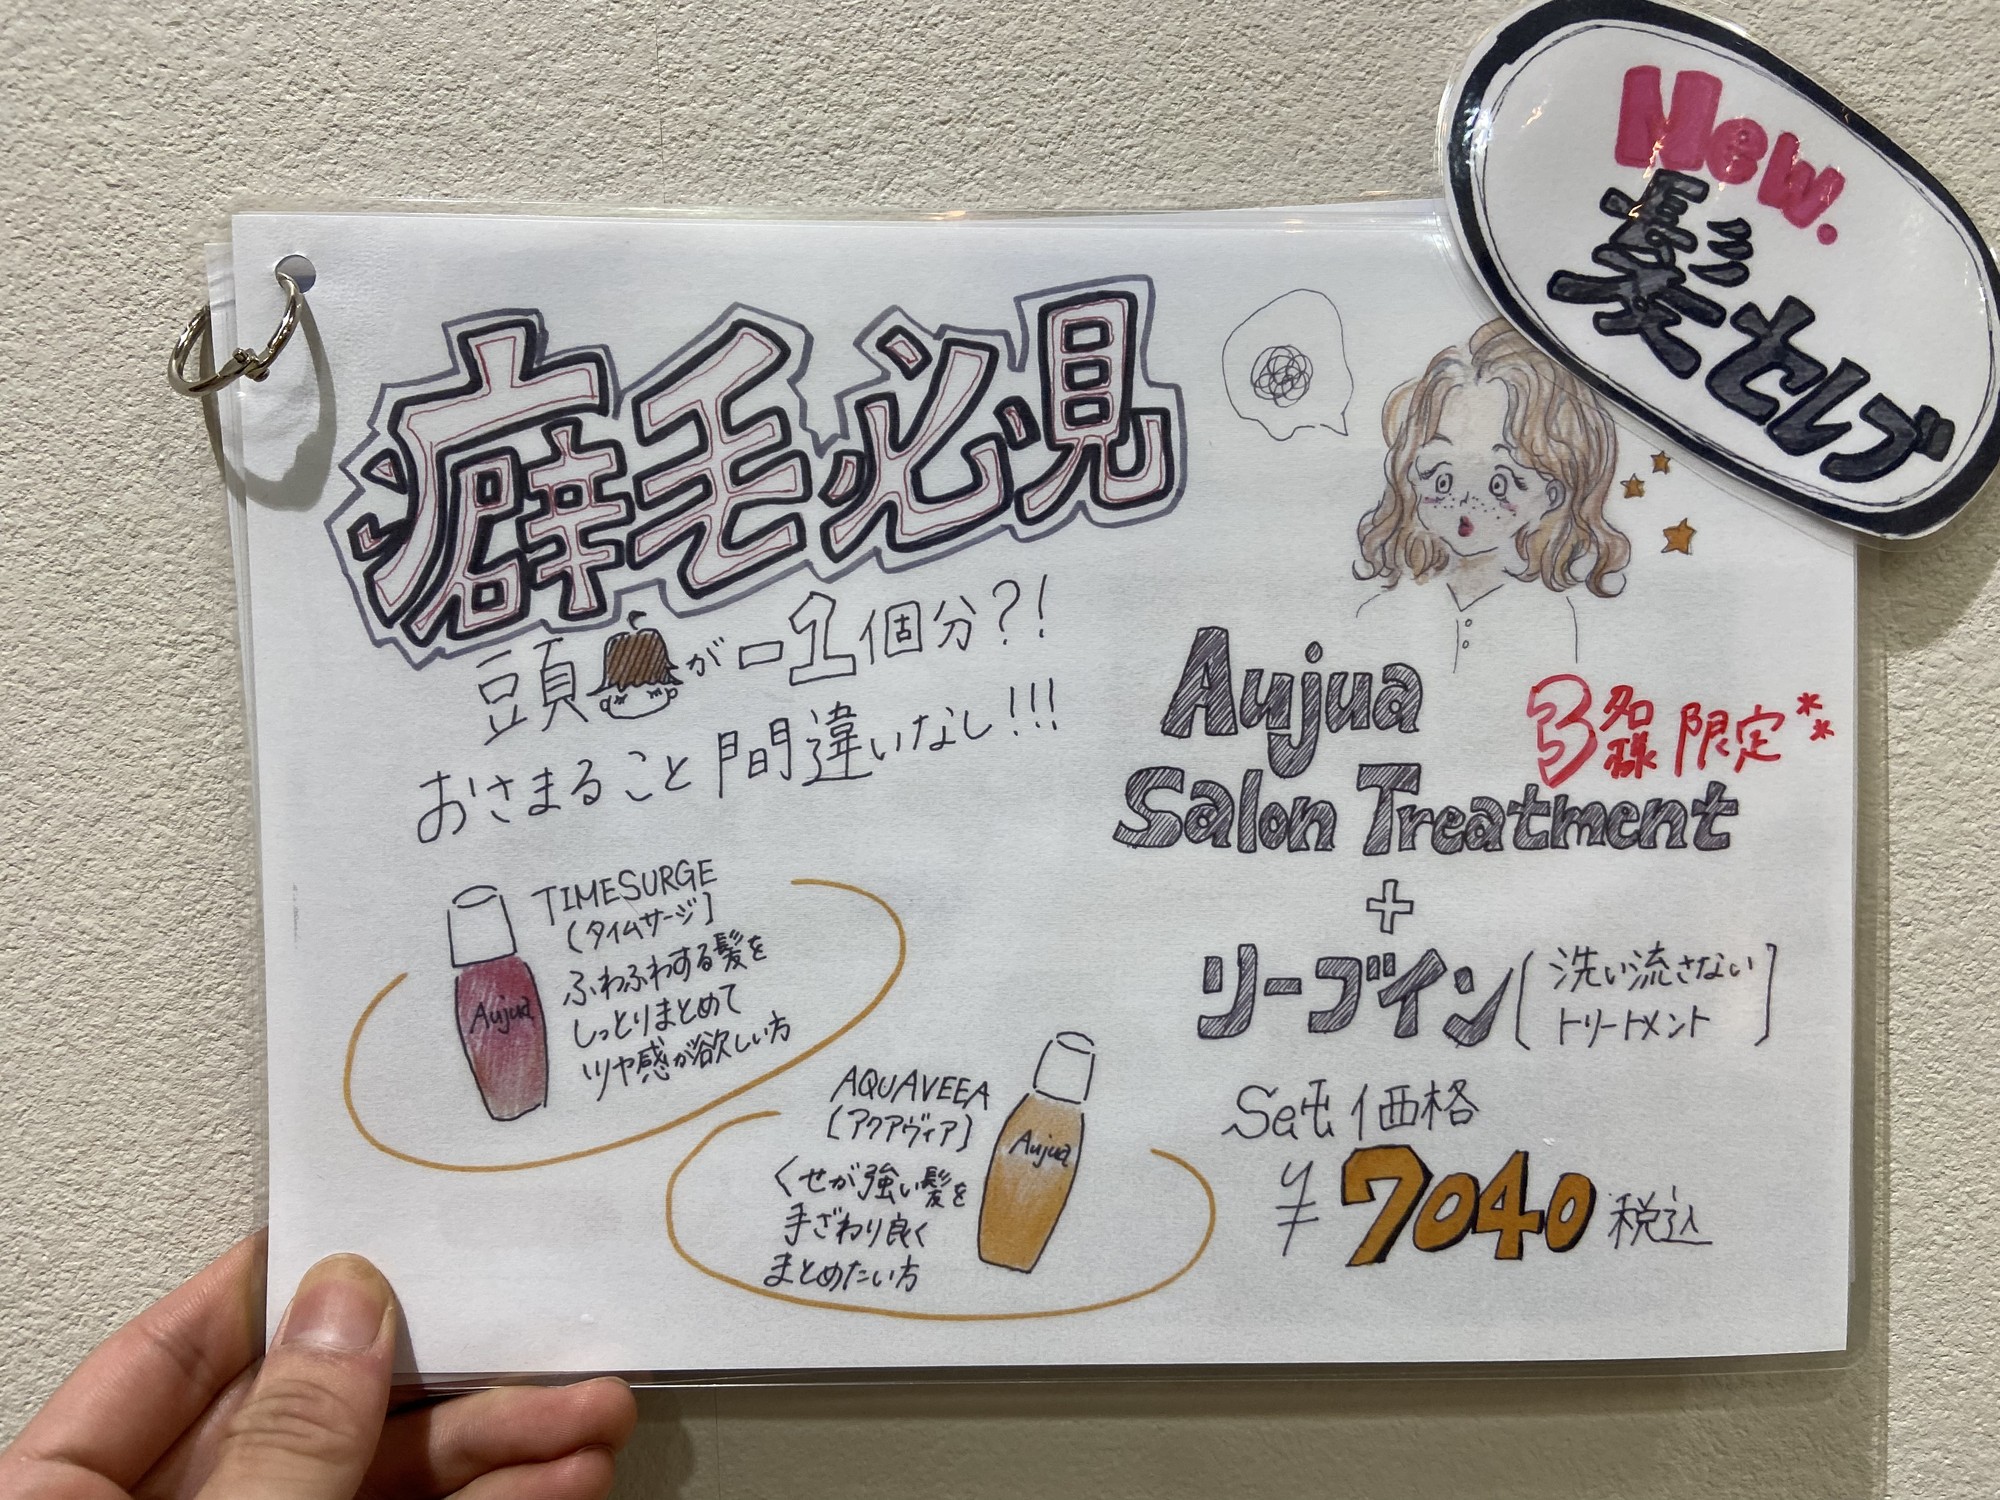 New.
髪セレブ
癖毛必見
頭が-1個分?!
おさまること間違いなし!!!
Aujua
3名様限定**
Salon Treatment
+
リーブイン(洗い流さない
トリートメント)
Set価格
¥7040税込
TIMESURGE
(タイムサージ]
ふわふわする髪を
しっとりまとめて
ツヤ感が欲しい方
Aujua
AQUAVEEA
[アクアヴィア]
くせが強い髪を
手ざわり良く
まとめたい方
Aujua